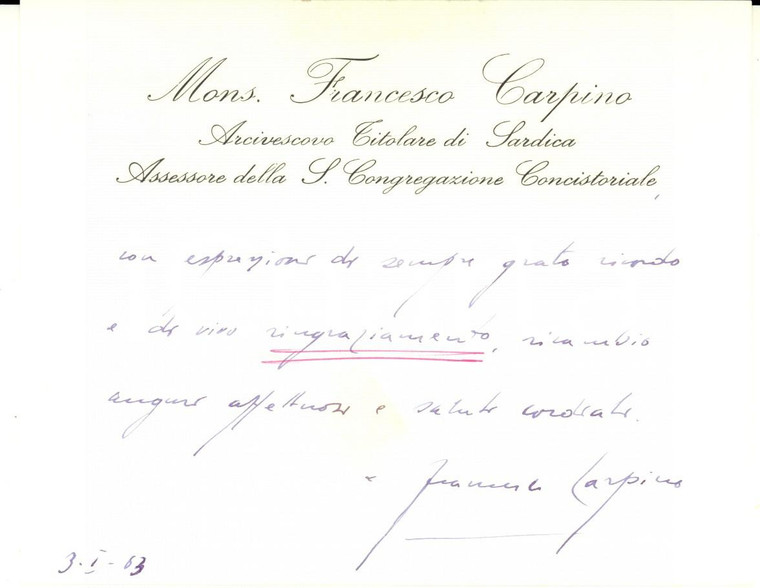 Mons. Francesco Carpino
Arcivescovo Titolare di Sardica
Assessore della S. Congregazione Concistoriale,
con espressione di sempre grato ricordo
e di vivo ringraziamento, ricambio
auguri affettuosi e saluti cordiali.
+ Francesco Carpino
3-I-63